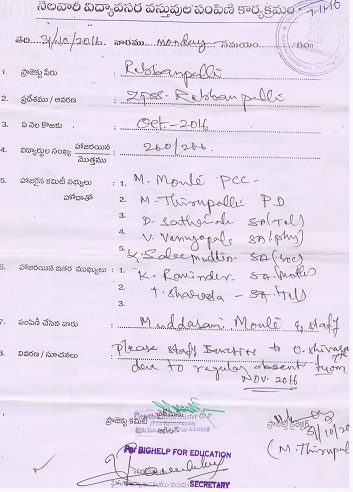 నెలవారీ విద్యావసర వస్తువుల పంపిణీ కార్యక్రమం
తేది. 31/10/2016 వారము Monday సమయం
1. ప్రాజెక్టు పేరు Rebbanpalli
2. ప్రదేశము / ఆవరణ ZPSS-Rebbanpalli
3. ఏ నెల కొరకు Oct-2016
4. విద్యార్థుల సంఖ్య హాజరయిన/మొత్తము 200/200
5. హాజరైన కమిటీ సభ్యులు 1. M. Moulé PCC-
హోదాతో 2. M-Thirupalli PD
3. D. SA(Tel)
4. V. Venugopal SA(phy)
5. SA(soc)
6. హాజరయిన ఇతర ముఖ్యులు 1. K. Ravinder SA(maths)
2. T. Sharada - SA(Tel)
3.
7. పంపిణీ చేసిన వారు Muddasani Moulé & staff
8. వివరణ / సూచనలు Please staff to
due to regular absent from
NOV. 2016
ప్రాజెక్టు కమిటీ
For BIGHELP FOR EDUCATION
SECRETARY